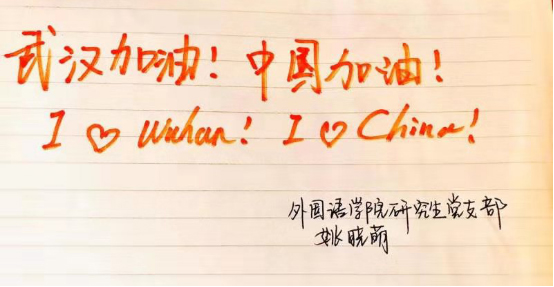 武汉加油!中国加油!
I ♡ Wuhan! I ♡ China!
外国语学院研究生党支部
姚晓萌